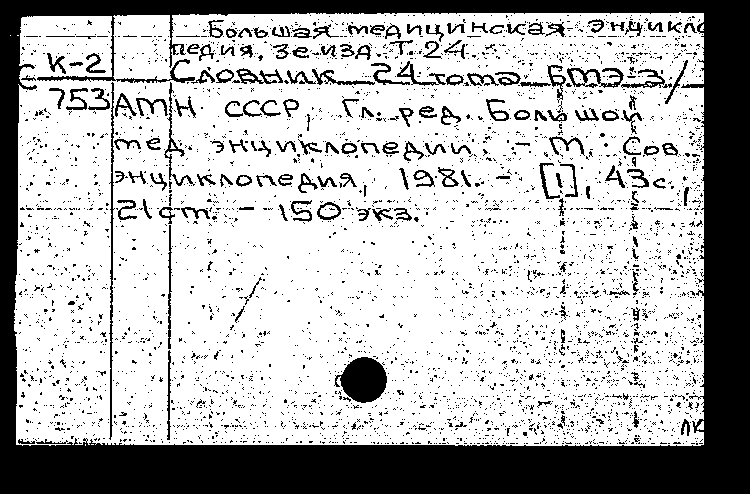 Большая медицинская энцикло
педия, 3е изд. Т. 24.
С К-2 Словник 24 тома БМЭ-3 /
753 АМН СССР, Гл. ред. Большой
мед. энциклопедии. - М.: Сов.
энциклопедия, 1981. - [1], 43 с.;
21 cm. - 150 экз.
ЛК